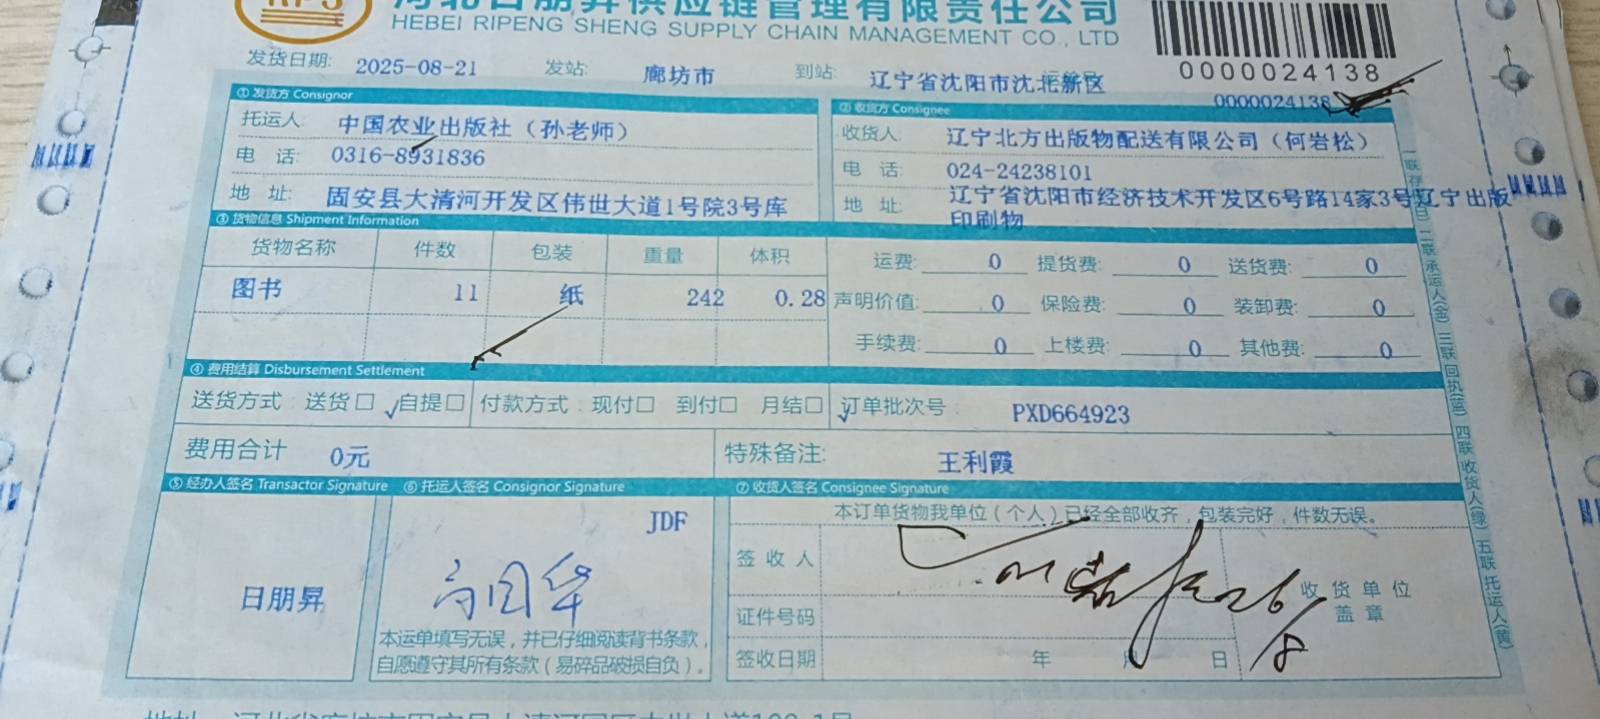 RPS 河北日朋昇供应链管理有限责任公司
HEBEI RIPENG SHENG SUPPLY CHAIN MANAGEMENT CO., LTD
0000024138
发货日期: 2025-08-21 发站: 廊坊市 到站: 辽宁省沈阳市沈北新区 运单号
0000024138
① 发货方 Consignor ② 收货方 Consignee
托运人: 中国农业出版社（孙老师） 收货人: 辽宁北方出版物配送有限公司（何岩松）
电 话: 0316-8931836 电 话: 024-24238101
地 址: 固安县大清河开发区伟世大道1号院3号库 地 址: 辽宁省沈阳市经济技术开发区6号路14家3号辽宁出版
印刷物
③ 货物信息 Shipment Information
货物名称 件数 包装 重量 体积 运费: 0 提货费: 0 送货费: 0
图书 11 纸 242 0.28 声明价值: 0 保险费: 0 装卸费: 0
手续费: 0 上楼费: 0 其他费: 0
④ 费用结算 Disbursement Settlement
送货方式：送货□ ✓自提□ 付款方式：现付□ 到付□ 月结□ ✓订单批次号 PXD664923
费用合计 0元 特殊备注: 王利霞
⑤ 经办人签名 Transactor Signature ⑥ 托运人签名 Consignor Signature ⑦ 收货人签名 Consignee Signature
本订单货物我单位（个人）已经全部收齐，包装完好，件数无误。
JDF
签 收 人
日朋昇
收 货 单 位
盖 章
证件号码
26/8
本运单填写无误，并已仔细阅读背书条款，
自愿遵守其所有条款（易碎品破损自负）。
签收日期 年 月 日
二联承运人(金) 三联回执(蓝) 四联收货人(绿) 五联托运人(黄)